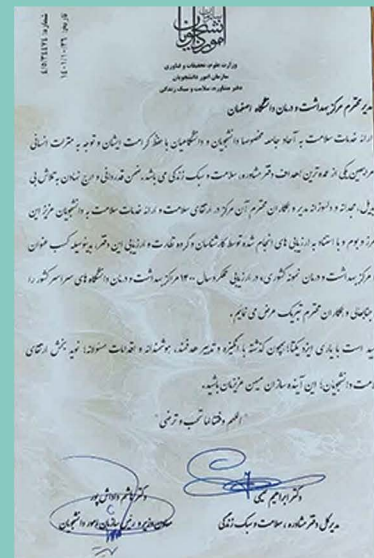 شماره: ۴۱/۵/۳۴۸۷۴
تاریخ: ۱۴۰۱/۱۰/۲۶
سازمان
امور دانشجویان
وزارت علوم، تحقیقات و فناوری
سازمان امور دانشجویان
دفتر مشاوره، سلامت و سبک زندگی
مدیر محترم مرکز بهداشت و درمان دانشگاه اصفهان
ارائه خدمات سلامت به آحاد جامعه مخصوصا دانشجویان و دانشگاهیان با حفظ کرامت ایشان و توجه به منزلت انسانی
مراجعین یکی از عمده ترین اهداف دفتر مشاوره، سلامت و سبک زندگی می باشد. ضمن قدردانی و ارج نهادن به تلاش بی
بدیل، مجدانه و دلسوزانه مدیر و همکاران محترم آن مرکز در ارتقای سلامت و ارائه خدمات سلامت به دانشجویان عزیز این
مرز و بوم و با استناد به ارزیابی های انجام شده توسط کارشناسان و گروه نظارت و ارزیابی این دفتر، بدینوسیله کسب عنوان
مرکز بهداشت و درمان نمونه کشوری، در ارزیابی عملکرد سال ۱۴۰۰ مراکز بهداشت و درمان دانشگاه های سراسر کشور را
جنابعالی و همکاران محترم تبریک عرض می نمایم.
امید است با یاری ایزد یکتا، همچون گذشته با انگیزه و تدبیر هدفمند، هوشمندانه و اقدامات مسئولانه، نوید بخش ارتقای
سلامت دانشجویان، این آینده سازان میهن عزیزمان باشید.
"اللهم وفقنا لما تحب و ترضی"
دکتر ابراهیم نعیمی
مدیر کل دفتر مشاوره، سلامت و سبک زندگی
دکتر هاشم داداش پور
معاون وزیر و رئیس سازمان امور دانشجویان